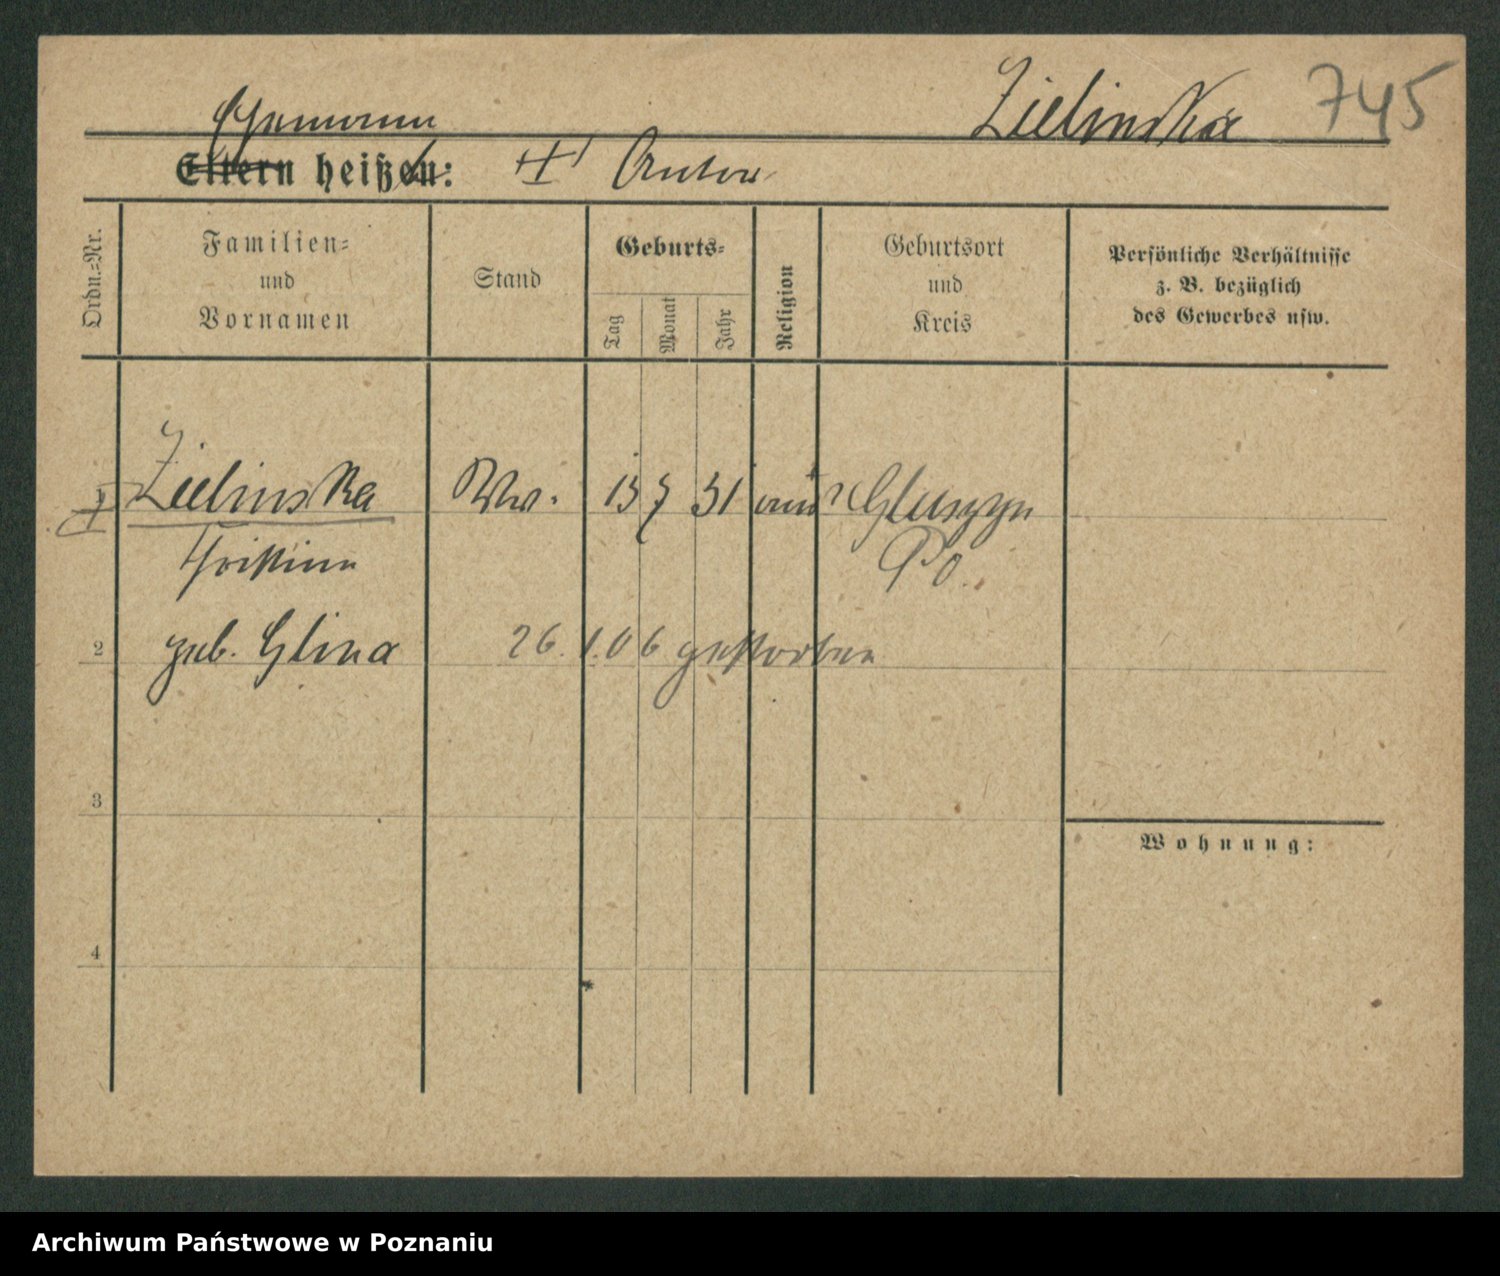 Zielinska 745
Ehemann
Eltern heißen: Anton
Ordn.=Nr.
Familien=
und
Vornamen
Stand
Geburts=
Tag
Monat
Jahr
Religion
Geburtsort
und
Kreis
Persönliche Verhältnisse
z. B. bezüglich
des Gewerbes usw.
Zielinska Ww. 13 7 31 Gluszyn
Po.
2 geb. Glina 26.1.06 gestorben
3
Wohnung:
4
Archiwum Państwowe w Poznaniu